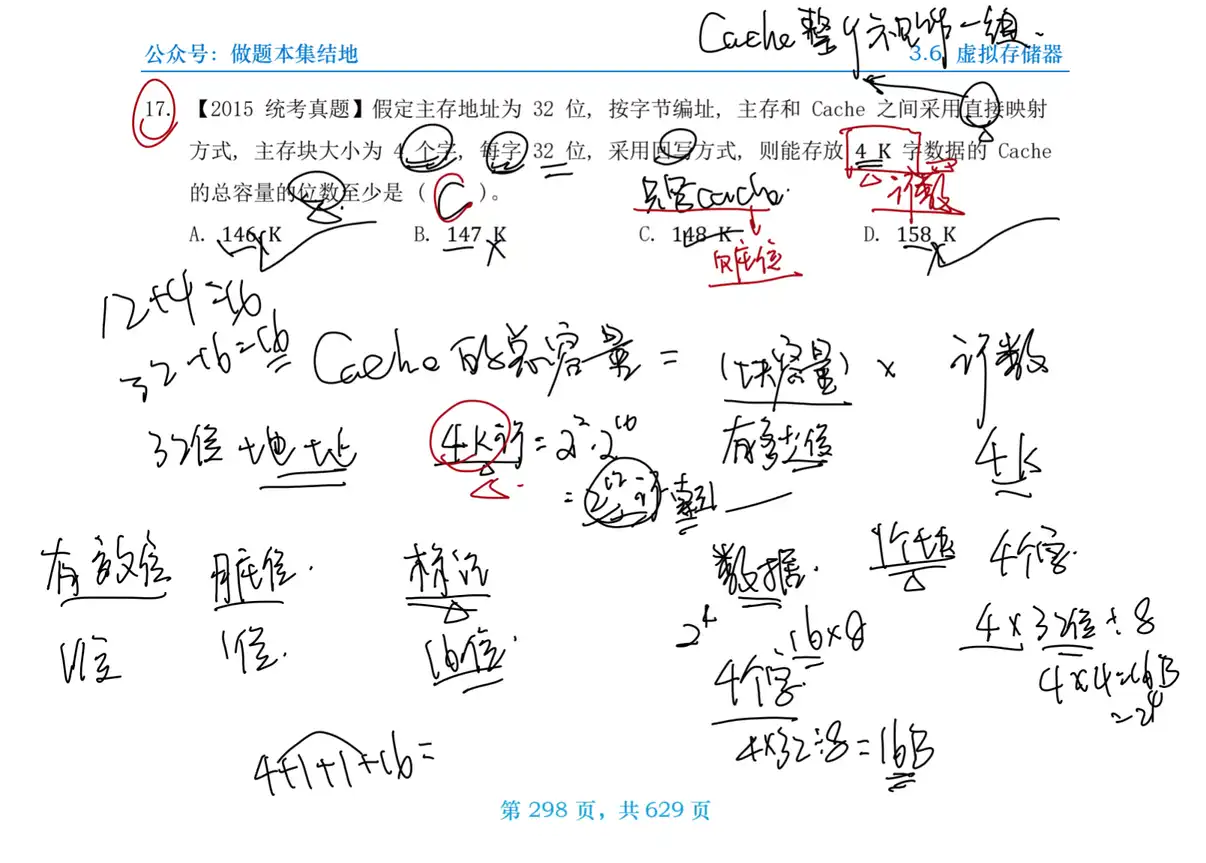 Cache整个视作一组.
公众号：做题本集结地 3.6 虚拟存储器
17. 【2015 统考真题】假定主存地址为 32 位，按字节编址，主存和 Cache 之间采用直接映射
方式，主存块大小为 4 个字，每字 32 位，采用回写方式，则能存放 4 K 字数据的 Cache
的总容量的位数至少是（ C ）。
只写cache. 行数
A. 146 K B. 147 K C. 148 K D. 158 K
脏位
12+4=16
32-16=16
Cache的总容量 = (块容量) × 行数
32位 地址 4K行 = 2²·2¹⁰ 有多少位 4K
= 2¹² 索引
有效位 脏位. 标记 数据. 1个块 4个字.
1位 1位. 16位. 2⁴ 16×8 4×32位÷8
4个字. 4×4=16B
=2⁴
4×32÷8=16B
4+1+1+16=
第 298 页，共 629 页